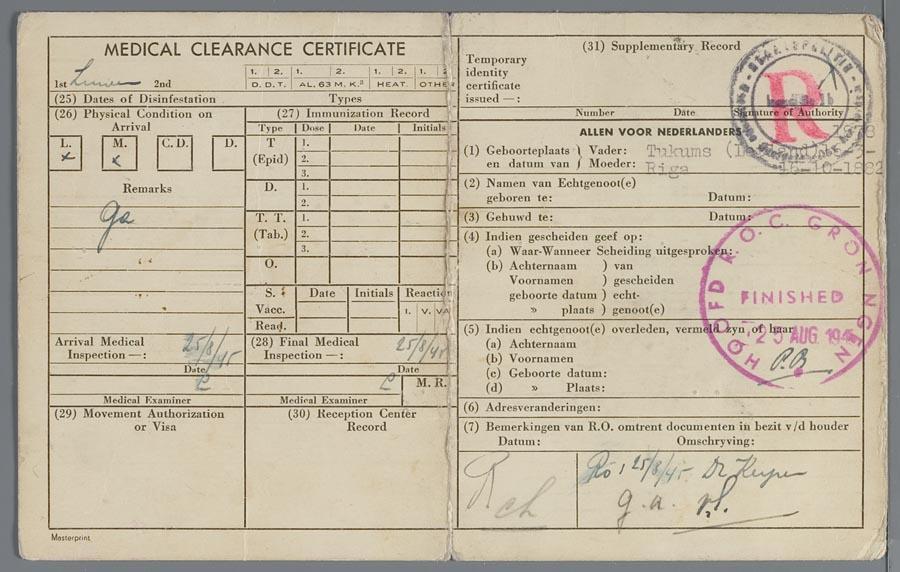 MEDICAL CLEARANCE CERTIFICATE
1st 2nd
1. 2. 1. 2. 1. 2. 1. 2
D.D.T. AL. 63 M. K.³ HEAT. OTHE
(25) Dates of Disinfestation Types
(26) Physical Condition on Arrival
L. M. C.D. D.
x x
Remarks
ga
(27) Immunization Record
Type Dose Date Initials
T (Epid) 1. 2. 3.
D. 1. 2.
T. T. (Tab.) 1. 2. 3.
O.
S. Date Initials Reaction
Vacc. I. V. VA
Read.
Arrival Medical Inspection —: 25/8/45
Date
Medical Examiner
(28) Final Medical Inspection —: 25/8/45
Date
M. R.
Medical Examiner
(29) Movement Authorization or Visa
(30) Reception Center Record
Masterprint
(31) Supplementary Record
Temporary
identity
certificate
issued —:
Number Date Signature of Authority
R
ALLEN VOOR NEDERLANDERS
(1) Geboorteplaats ) Vader: Tukums
en datum van ) Moeder: Riga 16-10-1882
(2) Namen van Echtgenoot(e)
geboren te: Datum:
(3) Gehuwd te: Datum:
(4) Indien gescheiden geef op:
(a) Waar-Wanneer Scheiding uitgesproken:
(b) Achternaam ) van
Voornamen ) gescheiden
geboorte datum ) echt-
» plaats ) genoot(e)
HOOFD R.O.C. GRONINGEN
FINISHED
25 AUG. 1945
P.B
(5) Indien echtgenoot(e) overleden, vermeld zyn of haar
(a) Achternaam
(b) Voornamen
(c) Geboorte datum:
(d) » Plaats:
(6) Adresveranderingen:
(7) Bemerkingen van R.O. omtrent documenten in bezit v/d houder
Datum: Omschryving:
25/8/45
g.a.